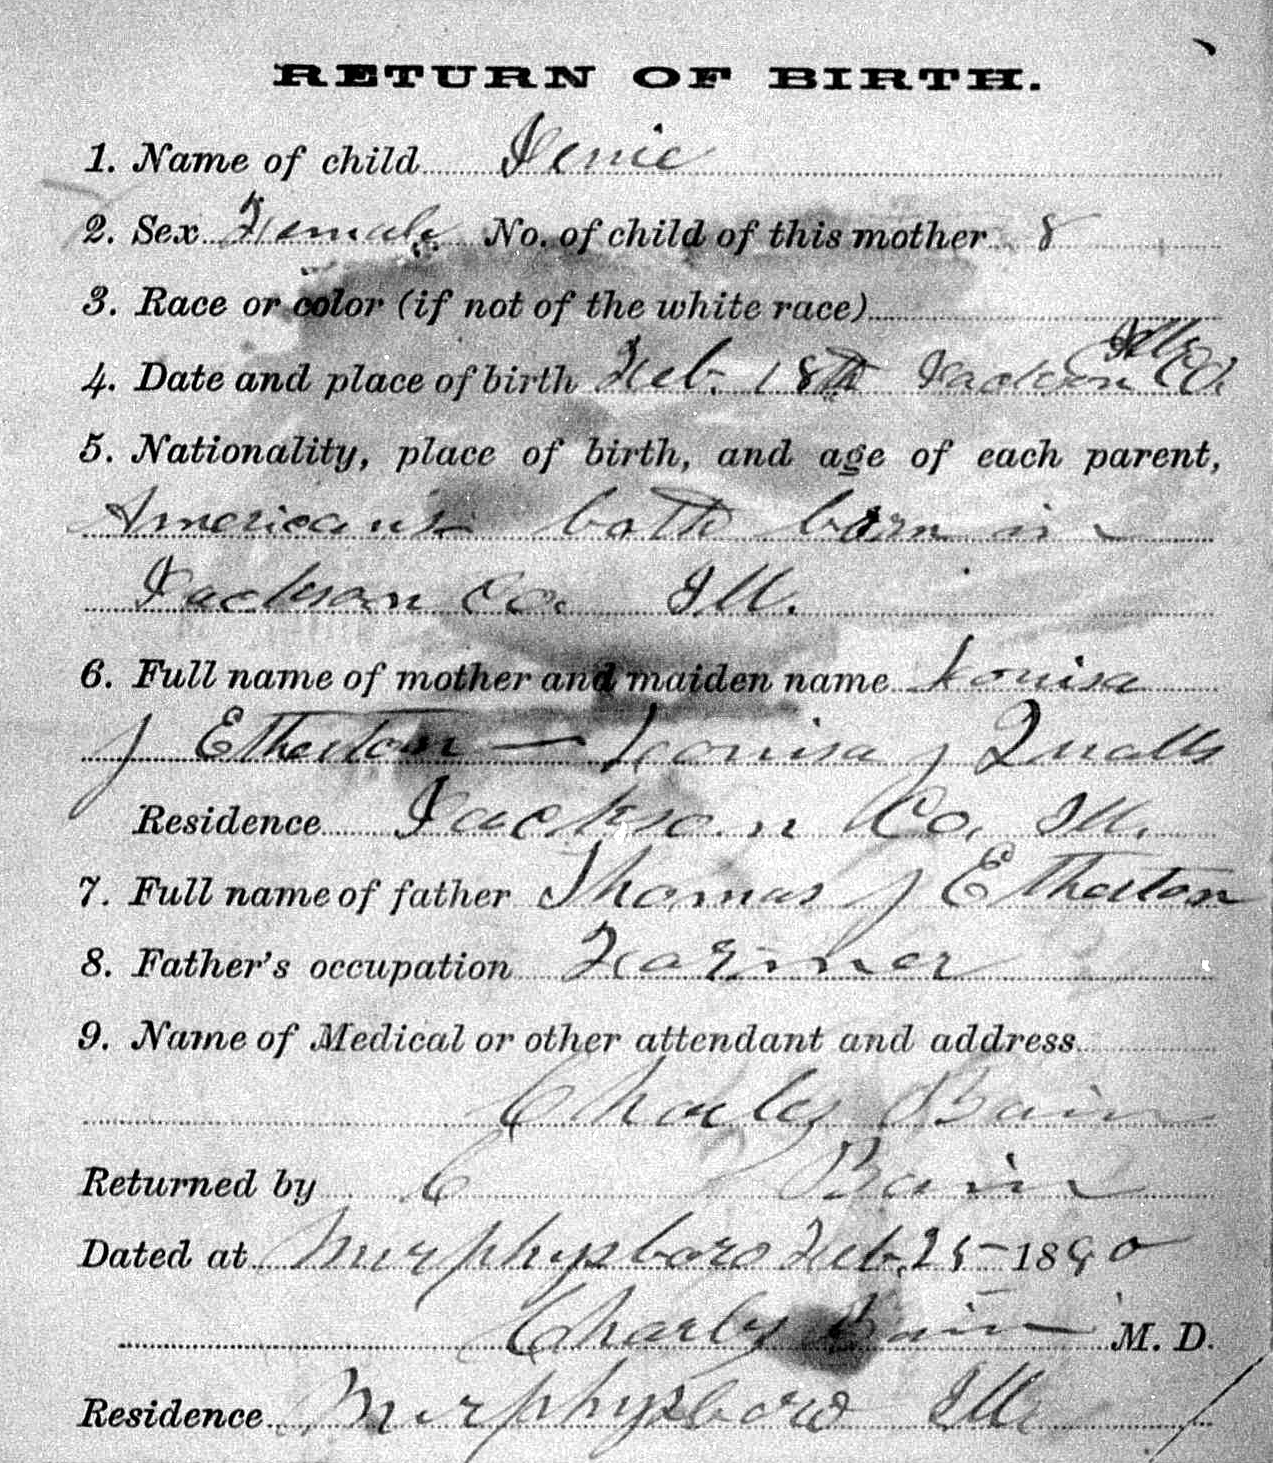 RETURN OF BIRTH.
1. Name of child Jenie
2. Sex Female No. of child of this mother 8
3. Race or color (if not of the white race)
Ills
4. Date and place of birth Feb. 18th Jackson Co.
5. Nationality, place of birth, and age of each parent,
Americans both born in
Jackson Co. Ill.
6. Full name of mother and maiden name Louisa
J Etherton — Louisa J Qualls
Residence Jackson Co. Ill.
7. Full name of father Thomas J Etherton
8. Father's occupation Farmer
9. Name of Medical or other attendant and address
Charley Bain
Returned by C Bain
Dated at Murphysboro Feb. 25 1890
Charley Bain M. D.
Residence Murphysboro Ill.